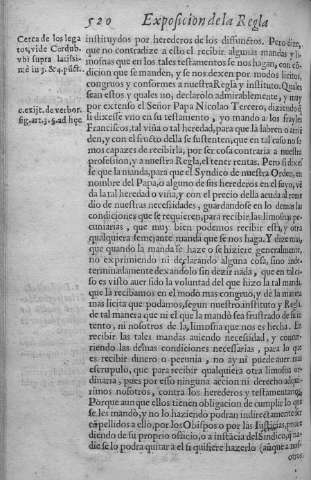 520 Exposicion de la Regla
Cerca de los lega
tos, vide Cordub.
vbi supra latissi-
mè in 3. & 4. pũct.
c. exijt. de verbor.
sig. art. 3. §. ad hęc
instituydos por herederos de los diffunctos. Pero dize,
que no contradize a esto el recibir algunas mandas y li-
mosnas que en los tales testamentos se nos hagan, con cõ-
dicion que se manden, y se nos dexen por modos licitos,
congruos y conformes a nuestra Regla y instituto. Quales
sean estos y quales no, declarolo admirablemente, y muy
por extenso el Señor Papa Nicolao Tercero, diziendo q̃
si dixesse vno en su testamento, yo mando a los frayles
Franciscos, tal viña o tal heredad, para que la labren o arriẽ
den, y con el fructo della se sustenten, que en tal caso no se-
mos capaces de recibirla, por ser cosa contraria a nuestra
profession, y a nuestra Regla, el tener rentas. Pero si dixes-
se que la manda, para que el Syndico de nuestra Orden, en
nombre del Papa, o alguno de sus herederos en el suyo, vẽ
da la tal heredad o viña, y con el precio della acuda al reme
dio de nuestras necessidades, guardandose en lo demas las
condiciones que se requieren, para recibir las limosnas pe-
cuniarias, que muy bien podemos recibir esta, y otra
qualquiera semejante manda que se nos haga. Y dize mas,
que quando la manda se haze o se hiziere generalmente,
no exprimiendo ni declarando alguna cosa, sino inde-
terminadamente dexandolo sin dezir nada, que en tal ca-
so es visto auer sido la voluntad del que hizo la tal manda,
que la recibamos en el modo mas congruo, y de la manera
mas licita que podamos, segun nuestro instituto y Regla,
de tal manera que ni el que la mandò sea frustrado de su in-
tento, ni nosotros de la limosna que nos es hecha. En
recibir las tales mandas auiendo necessidad, y concur-
riendo las demas condiciones necessarias, para lo que
es recibir dinero o pecunia, no ay ni puede auer mas
escrupulo, que para recibir qualquiera otra limosna or-
dinaria, pues por esso ninguna accion ni derecho adqui-
rimos nosotros, contra los herederos y testamentarios.
Porque aun que ellos tienen obligacion de cumplir lo que
se les mandò, y no lo haziendo podran indirectamente ser
cõpellidos a ello, por los Obispos o por las Iusticias, proce
diendo de su proprio oficio, o a instãcia del Sindico, q̃ na-
die se lo podra quitar a el si quisiere hazerlo (aũque a nos-
otros